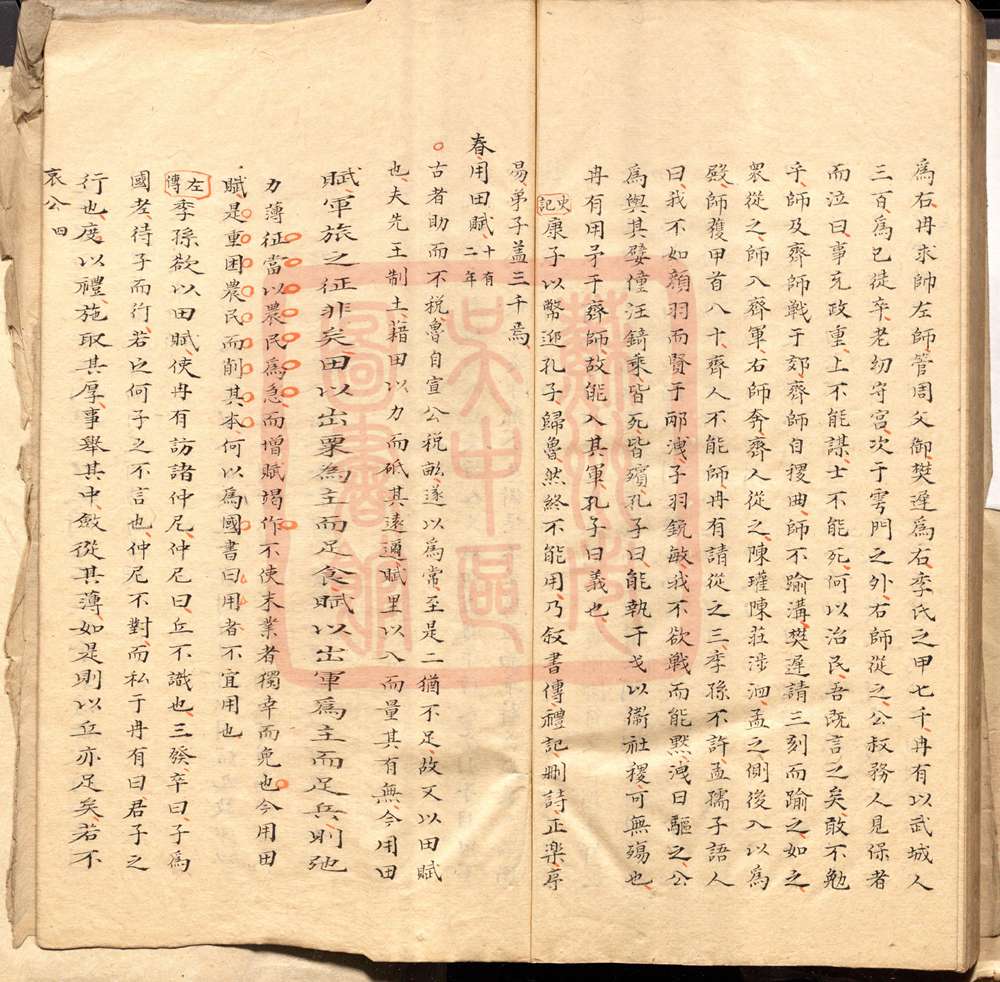 爲右冉求帥左師管周父御樊遲爲右季氏之甲七千冉有以武城人
三百爲已徒卒老幼守宮次于雩門之外右師從之公叔務人見保者
而泣曰事充政重上不能謀士不能死何以治民吾既言之矣敢不勉
乎師及齊師戰于郊齊師自稷曲師不踰溝樊遲請三刻而踰之如之
衆從之師入齊軍右師奔齊人從之陳瓘陳莊涉泗孟之側後入以爲
殿師獲甲首八十齊人不能師冉有請從之三季孫不許孟孺子語人
曰我不如顏羽而賢于邴洩子羽銳敏我不欲戰而能默洩曰驅之公
爲與其嬖僮汪錡乘皆死皆殯孔子曰能執干戈以衛社稷可無殤也
冉有用矛于齊師故能入其軍孔子曰義也
史記康子以幣迎孔子歸魯然終不能用乃叙書傳禮記刪詩正樂序
易弟子盖三千焉
春用田賦十有二年
古者助而不稅魯自宣公稅畝遂以爲常至是二猶不足故又以田賦
也夫先王制土藉田以力而砥其遠邇賦里以入而量其有無今用田
賦軍旅之征非矣田以出粟為主而足食賦以出軍爲主而足兵則弛
力薄征當以農民爲急而增賦竭作不使末業者獨幸而免也今用田
賦是重困農民而削其本何以爲國書曰用者不宜用也
左傳季孫欲以田賦使冉有訪諸仲尼仲尼曰丘不識也三發卒曰子爲
國老待子而行若之何子之不言也仲尼不對而私于冉有曰君子之
行也度以禮施取其厚事舉其中斂從其薄如是則以丘亦足矣若不
哀公 四
蘇州市
吳中區
圖書館